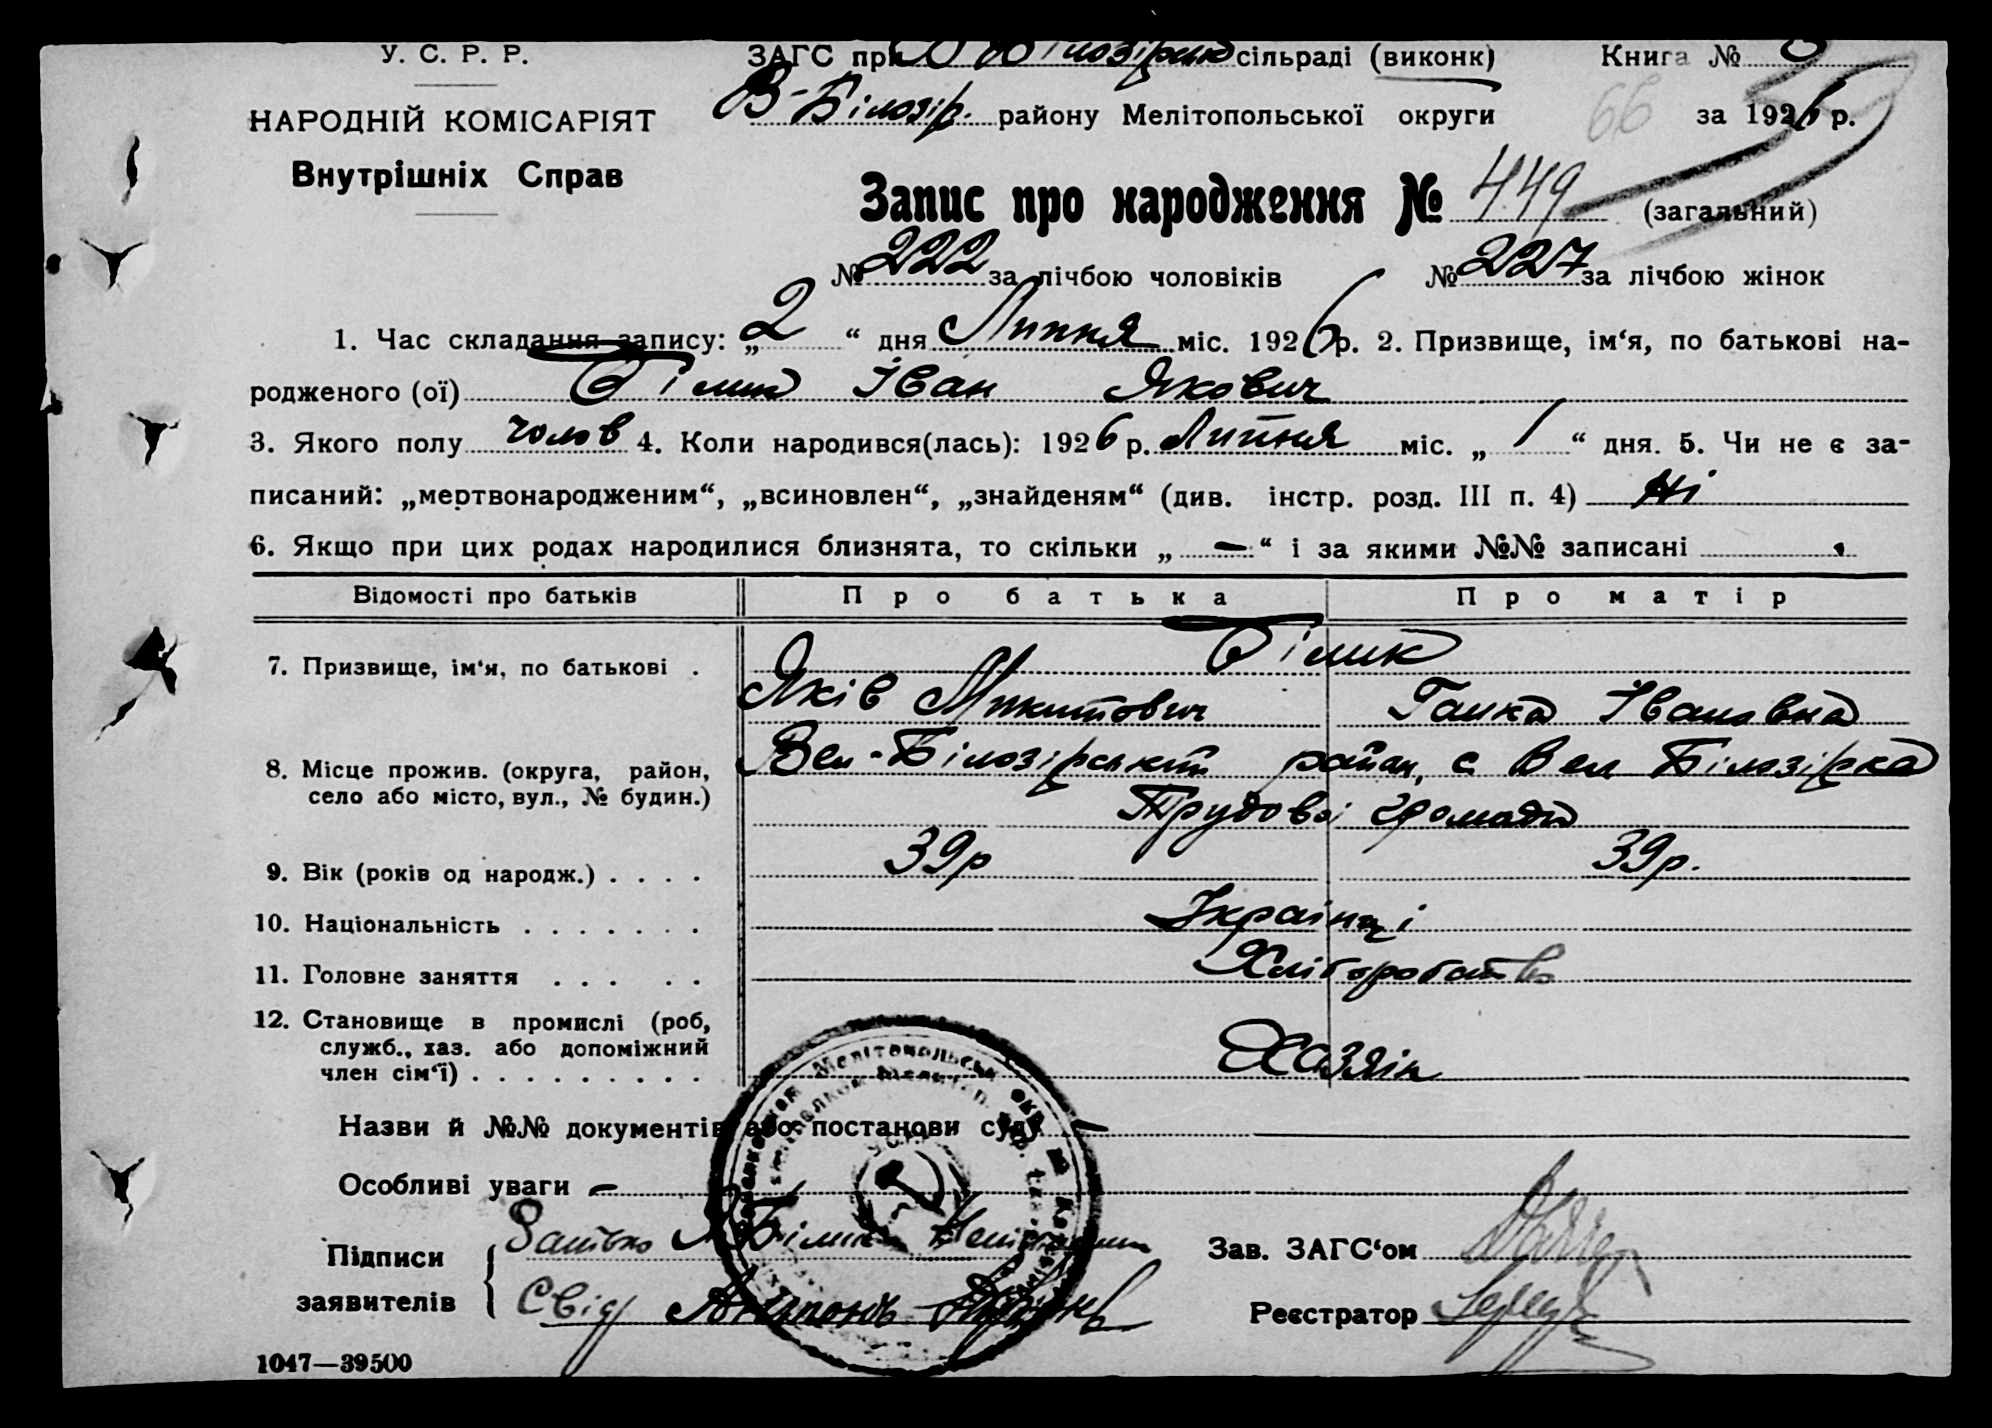 У. С. Р. Р.
НАРОДНІЙ КОМІСАРІЯТ
Внутрішніх Справ
ЗАГС при В Білозірик сільраді (виконк) Книга № 3
В-Білозір. району Мелітопольської округи 66 за 1926 р.
Запис про народження № 449 (загальний)
№ 222 за лічбою чоловіків № 227 за лічбою жінок
1. Час складання запису: „ 2 “ дня Липня міс. 1926 р. 2. Призвище, ім‘я, по батькові на-
родженого (ої) Білик Іван Якович
3. Якого полу чолов 4. Коли народився(лась): 1926 р. Липня міс. „ 1 “ дня. 5. Чи не є за-
писаний: „мертвонародженим“, „всиновлен“, „знайденям“ (див. інстр. розд. III п. 4) Ні
6. Якщо при цих родах народилися близнята, то скільки „ – “ і за якими №№ записані
Відомості про батьків Про батька Про матір
7. Призвище, ім‘я, по батькові . Білик
Яків Микитович Ганка Івановна
8. Місце прожив. (округа, район, Вел-Білозірський район, с Вел Білозірка
село або місто, вул., № будин.) Трудові громади
9. Вік (років од народж.) . . . . 39р 39р.
10. Національність . . . . . . . Українці
11. Головне заняття . . . . . Хліборобство
12. Становище в промислі (роб,
служб., хаз. або допоміжний Хазяін
член сім‘ї) . . . . . . . . .
Назви й №№ документів або постанови суду –
Особливі уваги –
Підписи Батько Я Білик Зав. ЗАГС‘ом
заявителів Свід Реєстратор
1047—39500